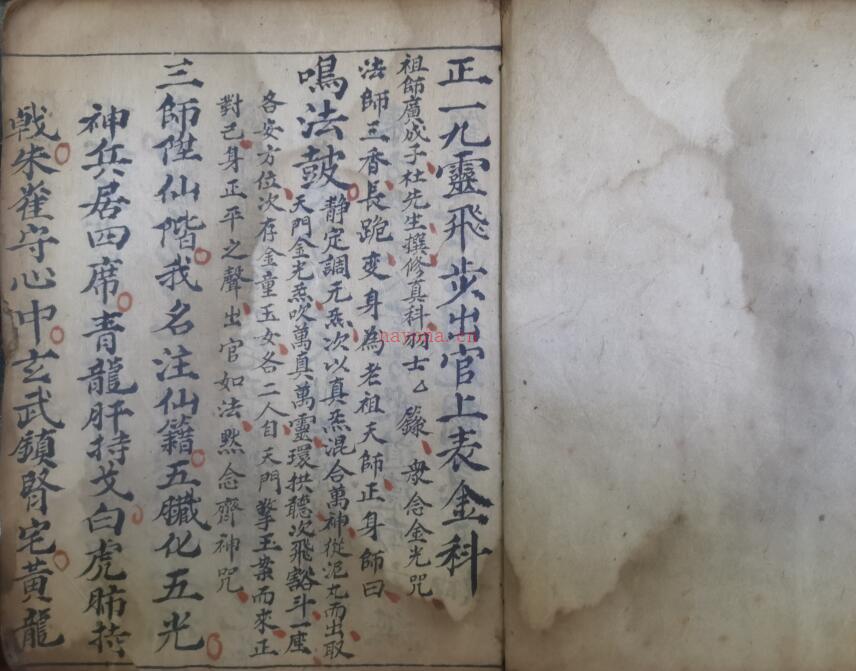 正一九靈飛步出官上表金科
祖師廣成子杜先生撰修真科羽士厶籙 衆念金光咒
法師三香長跪变身為老祖天師正身師曰
鳴法鼓
静定調元炁次以真炁混合萬神從泥丸而出取
天門金光炁吹萬真萬靈環拱聽次飛豁斗一座
各安方位次存金童玉女各二人自天門擎玉案而來正
對己身正平之聲出官如法默念齊神咒
三師陞仙階我名注仙籍五臟化五光
神兵居四席青龍肝持戈白虎肺持
戟朱雀守心中玄武鎮腎宅黃龍
nayona.cn